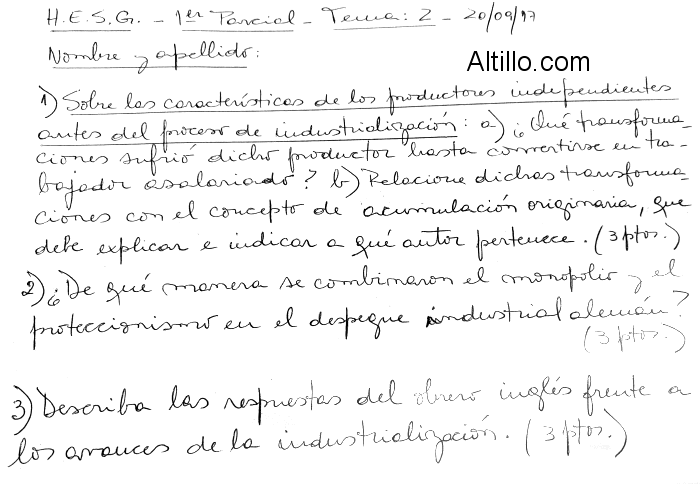 H.E.S.G. - 1er Parcial - Tema: 2 - 20/09/17
Nombre y apellido:
Altillo.com
1) Sobre las características de los productores independientes
antes del proceso de industrialización: a) ¿Qué transforma-
ciones sufrió dicho productor hasta convertirse en tra-
bajador asalariado? b) Relacione dichas transforma-
ciones con el concepto de acumulación originaria, que
debe explicar e indicar a qué autor pertenece. (3 ptos.)
2) ¿De qué manera se combinaron el monopolio y el
proteccionismo en el despegue industrial alemán?
(3 ptos.)
3) Describa las respuestas del obrero inglés frente a
los avances de la industrialización. (3 ptos.)